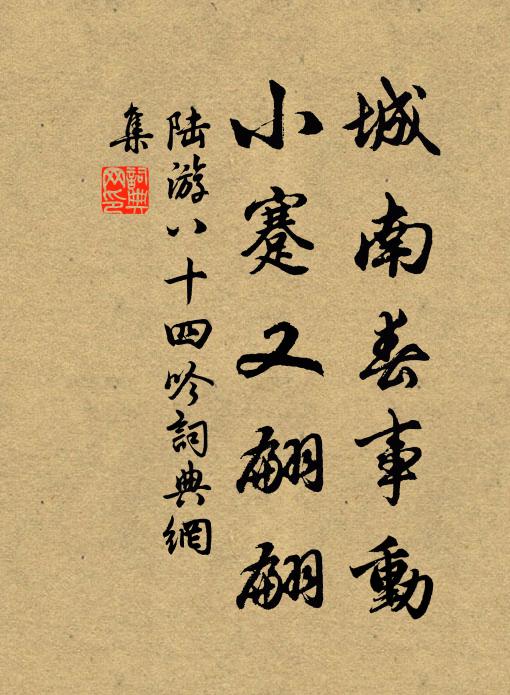 城南春事動
小蹇又翩翩
陆游八十四吟詞典網
集
詞典
网印